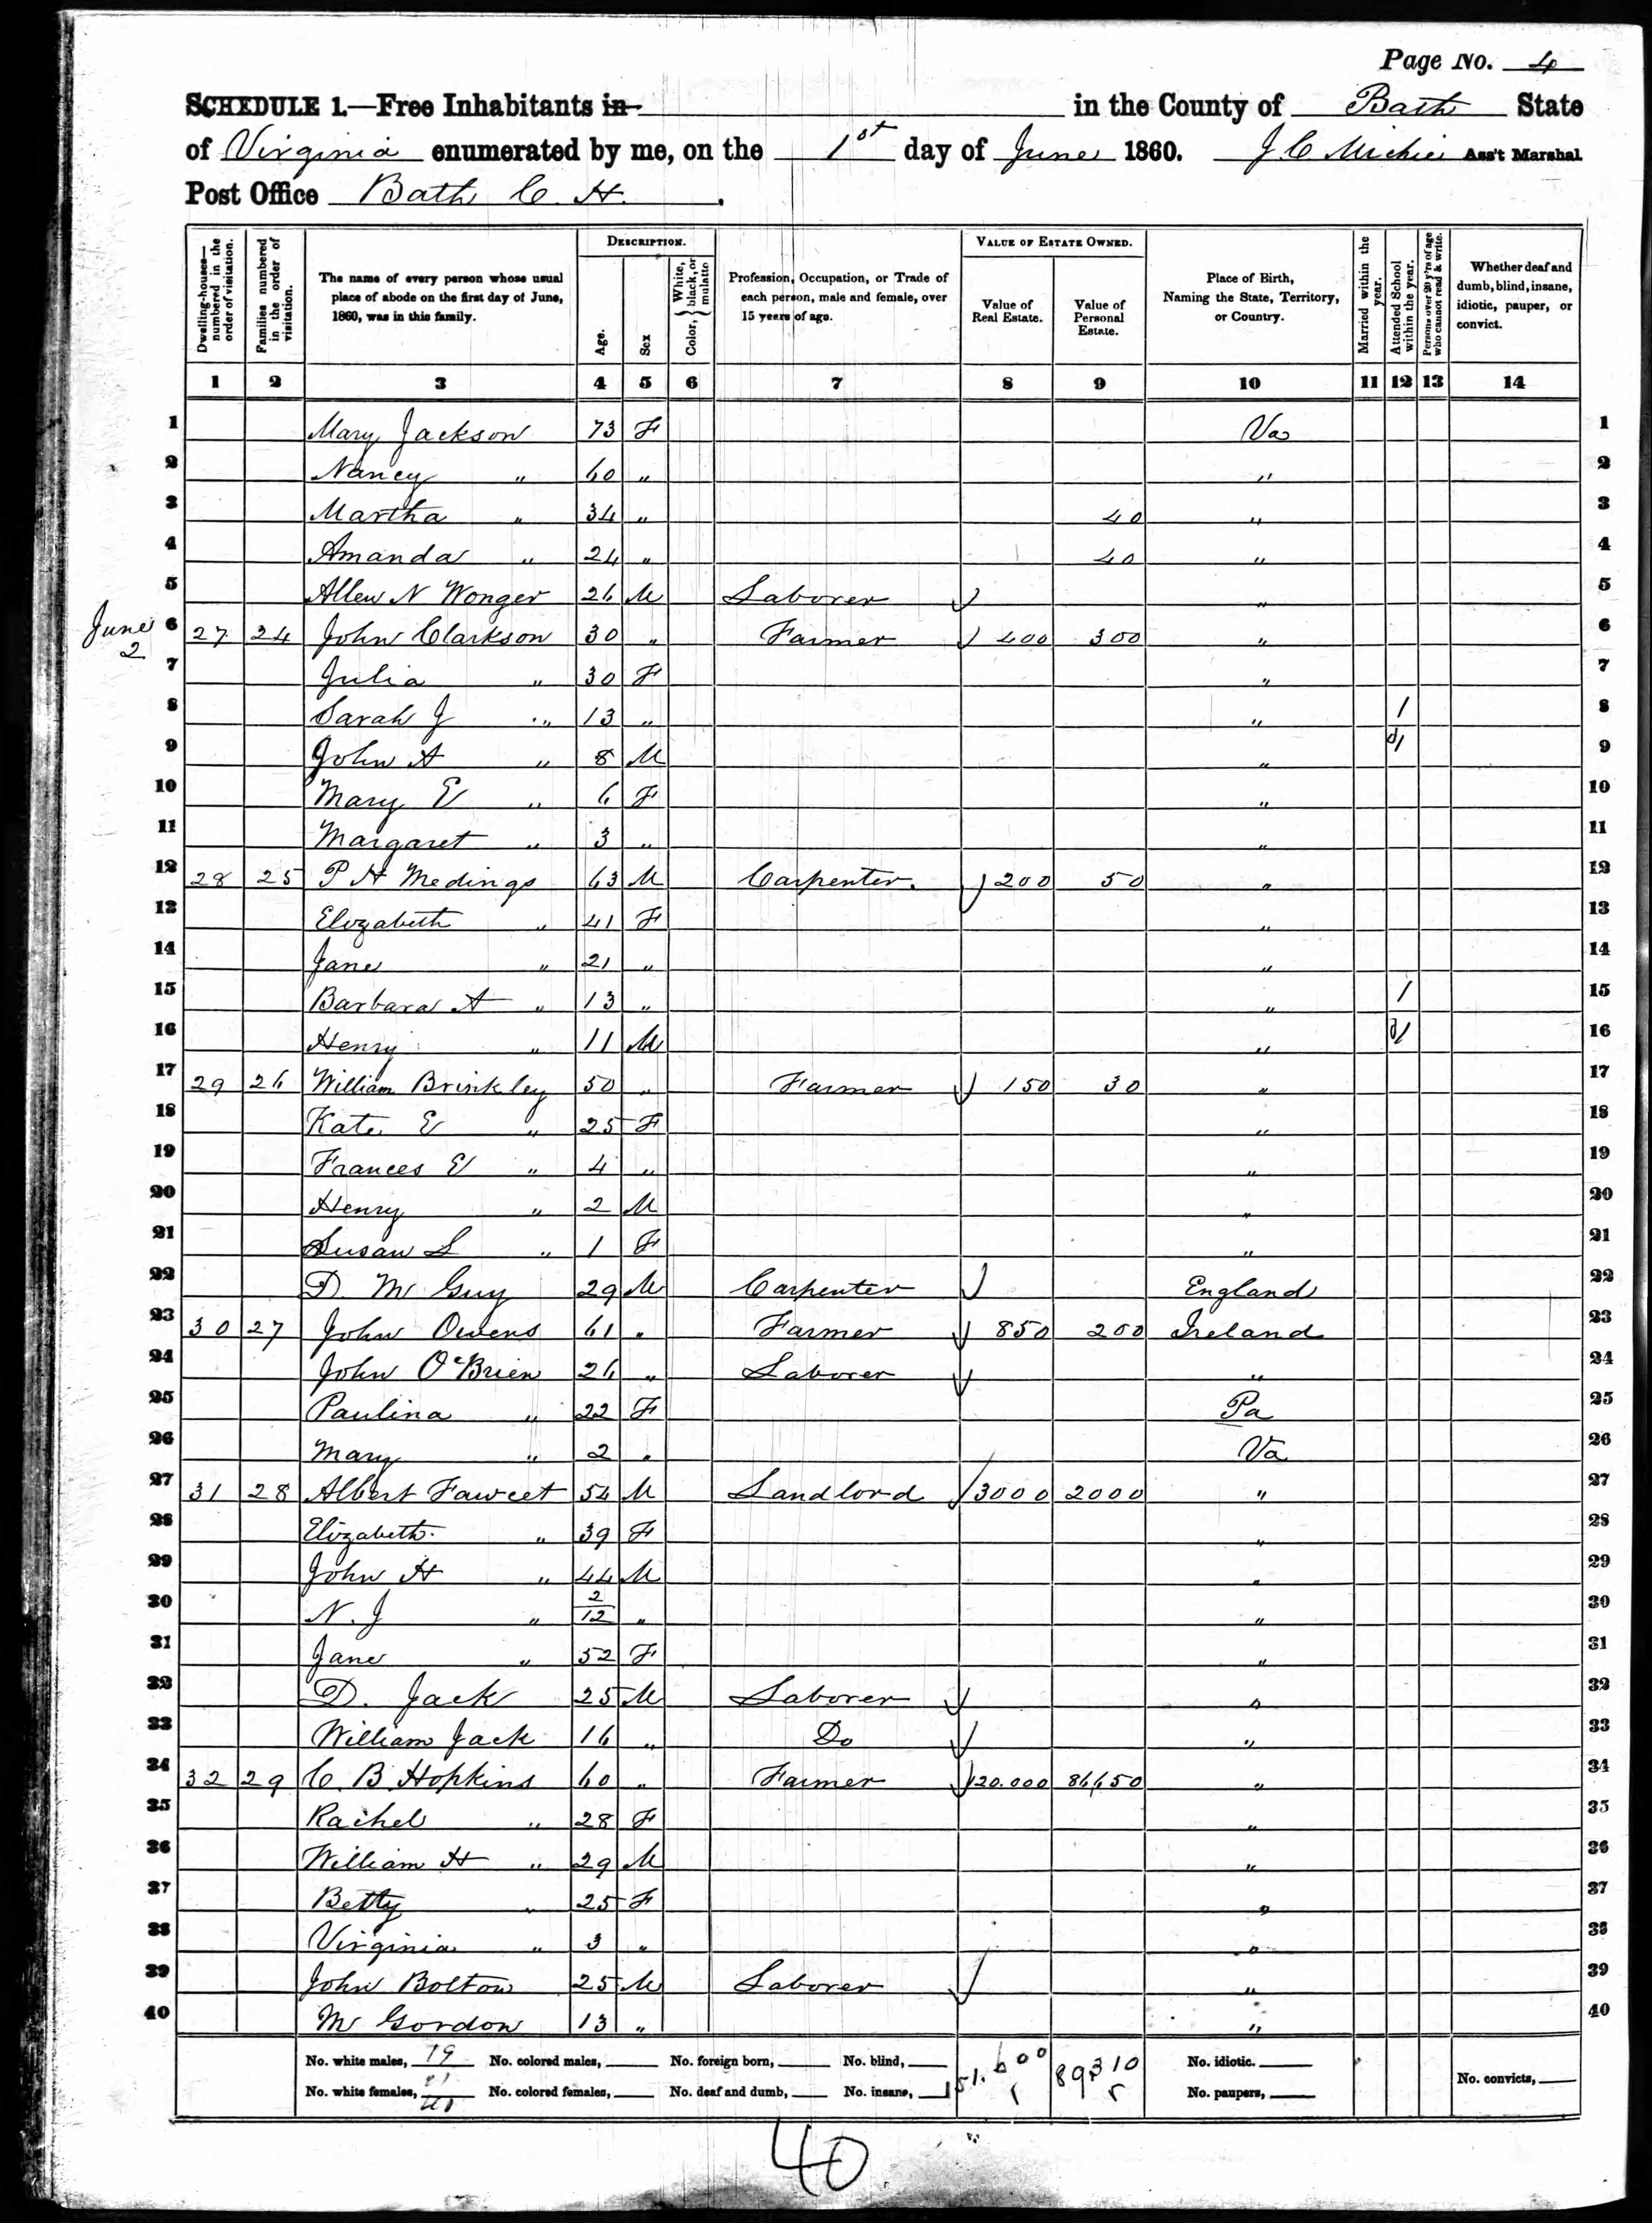 Page No. 4
SCHEDULE 1.—Free Inhabitants in in the County of Bath State
of Virginia enumerated by me, on the 1st day of June 1860. J. C. Michie Ass't Marshal
Post Office Bath C. H.
Dwelling-houses—numbered in the order of visitation.
Families numbered in the order of visitation.
The name of every person whose usual place of abode on the first day of June, 1860, was in this family.
DESCRIPTION.
Age.
Sex
Color, White, black, or mulatto
Profession, Occupation, or Trade of each person, male and female, over 15 years of age.
VALUE OF ESTATE OWNED.
Value of Real Estate.
Value of Personal Estate.
Place of Birth, Naming the State, Territory, or Country.
Married within the year.
Attended School within the year.
Persons over 20 y'rs of age who cannot read & write.
Whether deaf and dumb, blind, insane, idiotic, pauper, or convict.
1 2 3 4 5 6 7 8 9 10 11 12 13 14
1 Mary Jackson 73 F Va 1
2 Nancy " 60 " " 2
3 Martha " 34 " 40 " 3
4 Amanda " 24 " 40 " 4
5 Allen N Wonger 26 M Laborer " 5
June 2
6 27 24 John Clarkson 30 " Farmer 400 300 " 6
7 Julia " 30 F " 7
8 Sarah J " 13 " " / 8
9 John A " 8 M " / 9
10 Mary E " 6 F " 10
11 Margaret " 3 " " 11
12 28 25 P H Medings 63 M Carpenter. 200 50 " 12
13 Elizabeth " 41 F " 13
14 Jane " 21 " " 14
15 Barbara A " 13 " " / 15
16 Henry " 11 M " / 16
17 29 26 William Brinkley 50 " Farmer 150 30 " 17
18 Kate E " 25 F " 18
19 Frances E " 4 " " 19
20 Henry " 2 M " 20
21 Susan S " 1 F " 21
22 D. Mc Guy 29 M Carpenter England 22
23 30 27 John Owens 61 " Farmer 850 200 Ireland 23
24 John O'Brien 26 " Laborer " 24
25 Paulina " 22 F Pa 25
26 Mary " 2 " Va 26
27 31 28 Albert Fawcet 54 M Landlord 3000 2000 " 27
28 Elizabeth " 39 F " 28
29 John H " 44 M " 29
30 N. J " 2/12 " " 30
31 Jane " 52 F " 31
32 D. Jack 25 M Laborer " 32
33 William Jack 16 " Do " 33
34 32 29 C. B. Hopkins 60 " Farmer 120.000 86,650 " 34
35 Rachel " 28 F " 35
36 William H " 29 M " 36
37 Betty " 25 F " 37
38 Virginia " 3 " " 38
39 John Bolton 25 M Laborer " 39
40 M Gordon 13 " " 40
No. white males, 19 No. colored males, No. foreign born, No. blind, No. idiotic.
No. white females, 21 No. colored females, No. deaf and dumb, No. insane, 89310 No. paupers, No. convicts,
40
40